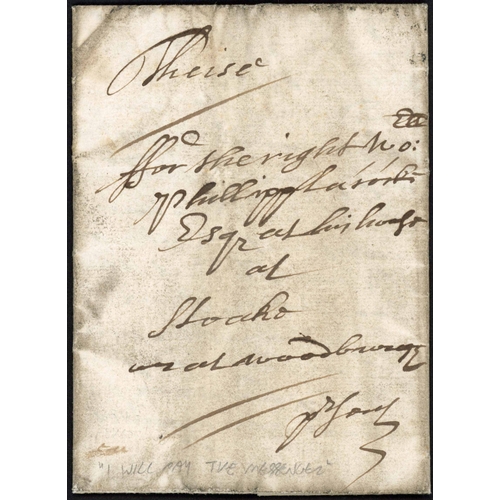 Theise
ffor the right ho:
Phillipp
Esqr at his house
at
Stoake
at woodbury
"I WILL PAY THE MESSENGER"